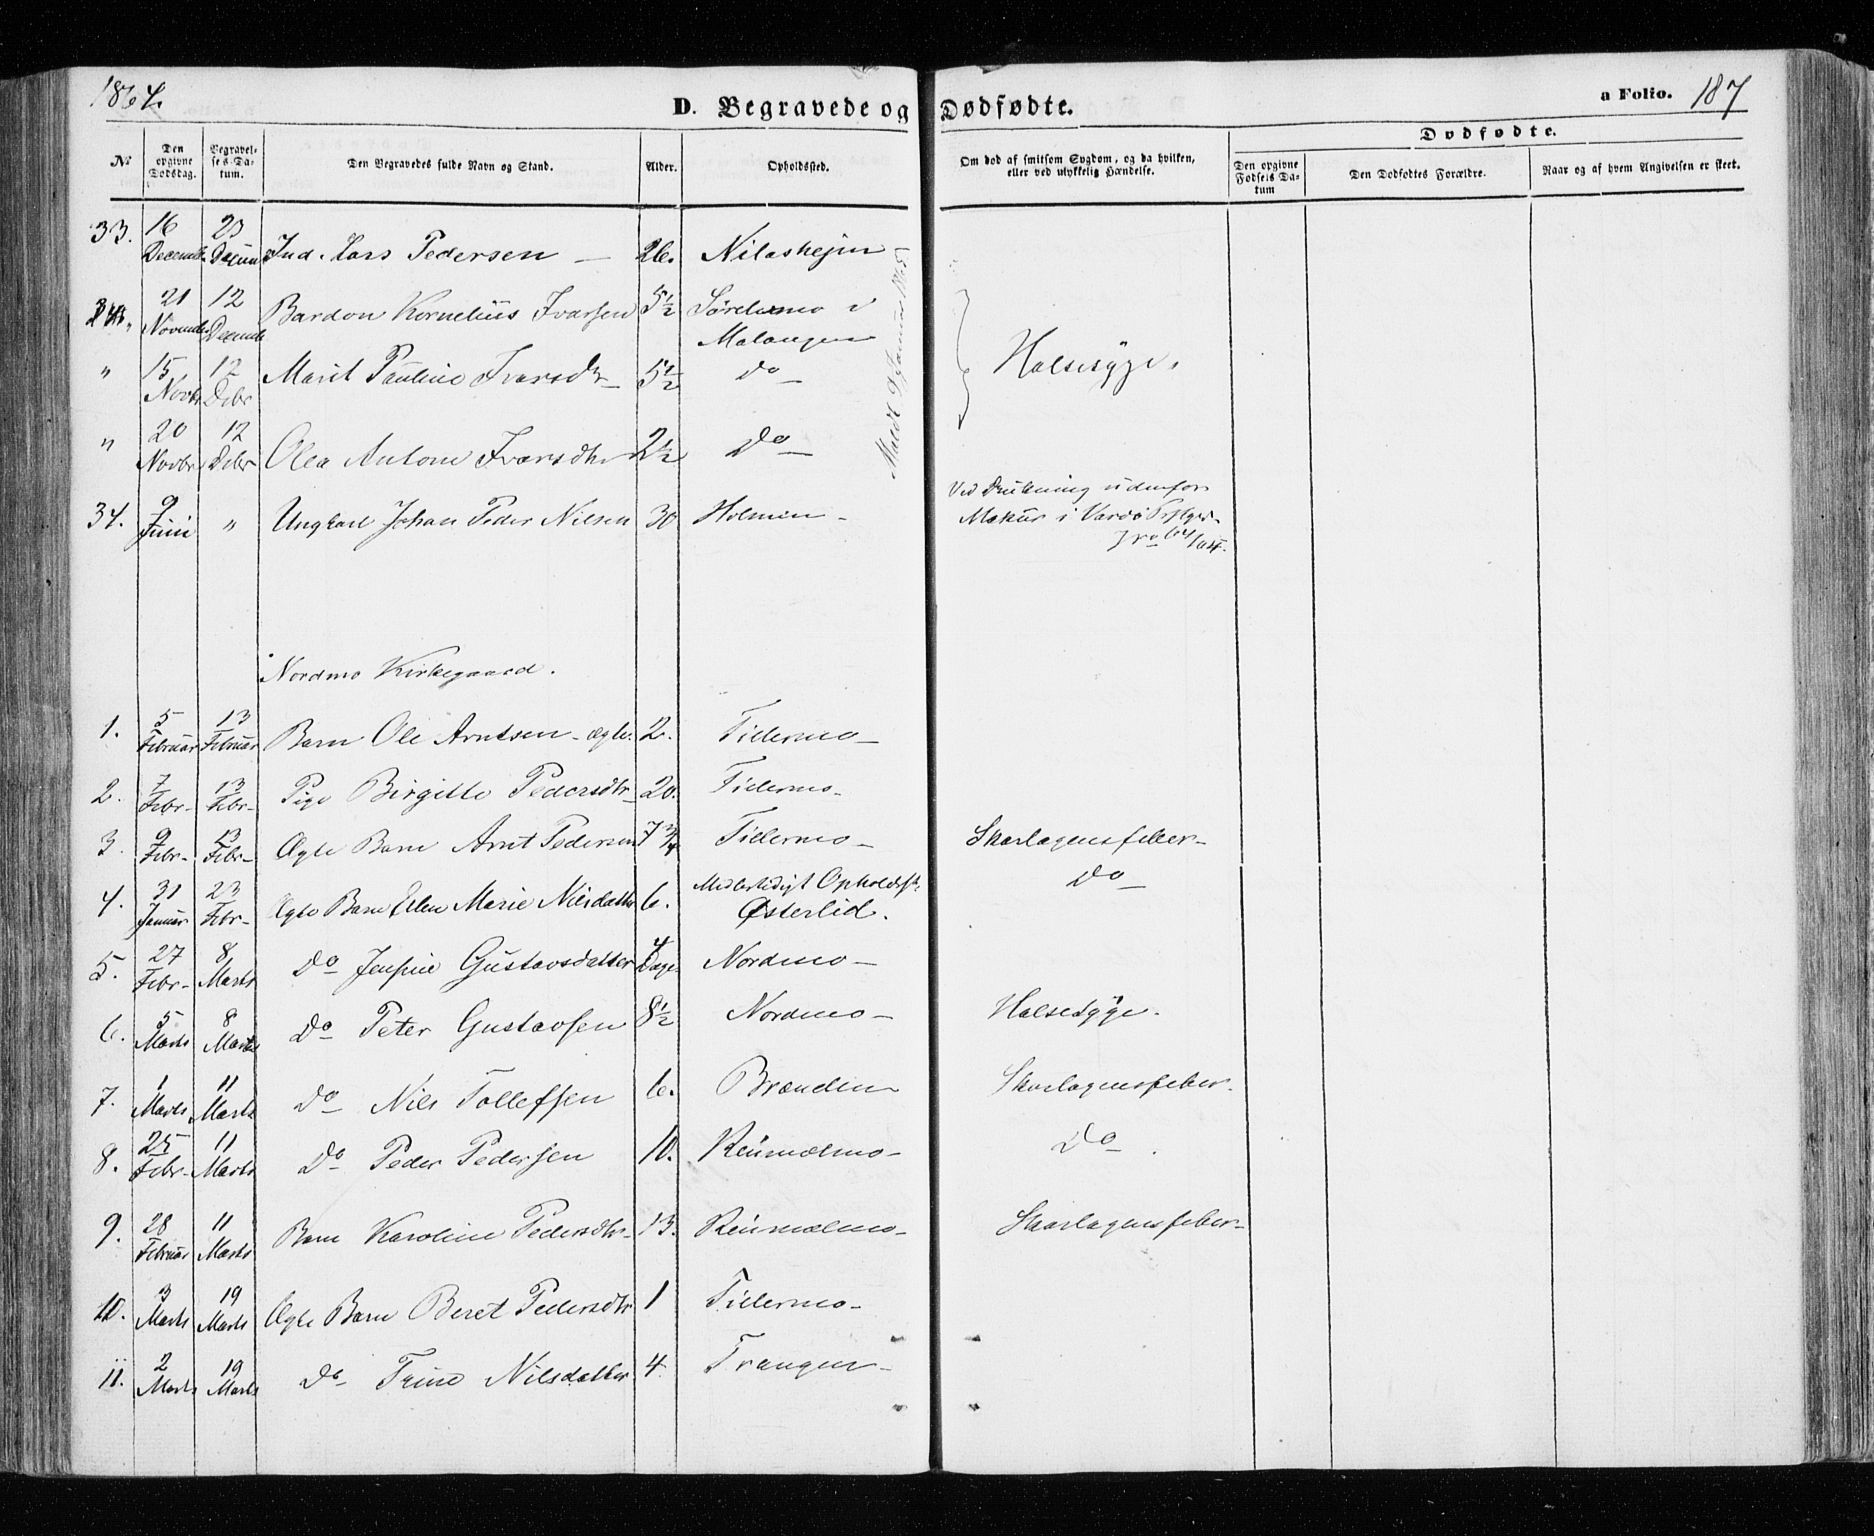 1864.
D. Begravede og Dødfødte.
a Folio. 187
No
Den opgivne Dødsdag.
Begravelses-Datum.
Den Begravedes fulde Navn og Stand.
Alder.
Opholdssted.
Om død af smitsom Sygdom, og da hvilken, eller ved ulykkelig Hændelse.
Dødfødte.
Den opgivne Fødsels Datum
Den Dødfødtes Forældre.
Naar og af hvem Angivelsen er skeet.
33. 16 December 23 Lars Pedersen — 26. Nilashejm
21 12 Bardon Kornelius Ivarsen 5½ Sørelvmo i Malangen
" 15 Novbr 12 Debr Marit Pauline Ivarsdtr 5½ do
Halsesyge.
" 20 Novbr 12 Debr Olea Antone Ivarsdtr 2½ do
Januar 1865
34. 9 Juni " Ungkarl Johan Peder Nilsen 30 Holmen — Ved Drukning udenfor Makur i Vardø
Nordmo Kirkegaard.
1. 5 Februar 13 Februar Barn Ole Arntsen - ægte. 2. Tillermo —
2. 7 Febr- 13 Febr- Pige Birgitte Pedersdtr 20. Tillermo-
3. 9 Febr- 13 Febr- Ægte Barn Arnt Pedersen 7¾ Tillermo — Skarlagensfeber-
4. 31 Januar 23 Febr- Ægte Barn Ellen Marie Nilsdatter 6. Midlertidigt Opholdsst. Østerlid. do
5. 27 Febr- 8 Marts do Jensine Gustavsdatter 4 Dage Nordmo —
6. 5 Marts 8 Marts do Peter Gustavsen 8½ Nordmo — Halsesyge.
7. 1 Marts 11 Marts do Nils Tollefsen 6. Brænden Skarlagensfeber.
8. 25 Febr- 11 Marts do Peder Pedersen 10. Reinmælmo- do
9. 28 Februar 11 Marts Barn Karoline Pedersdtr 13. Reinmælmo- Skarlagensfeber-
10. 3 Marts 19 Marts Ægte Barn Beret Pedersdtr 1 Tillermo-
11. 2 Marts 19 Marts do Trine Nilsdatter 4. Trangen-